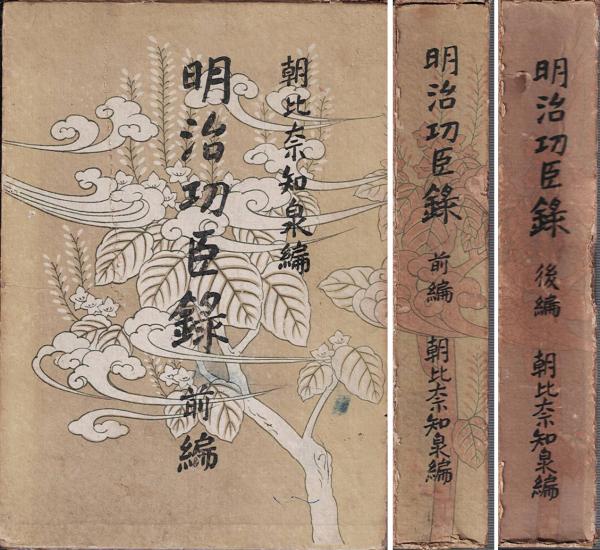 朝比奈知泉編
明治功臣録 前編
明治功臣録 前編 朝比奈知泉編
明治功臣録 後編 朝比奈知泉編